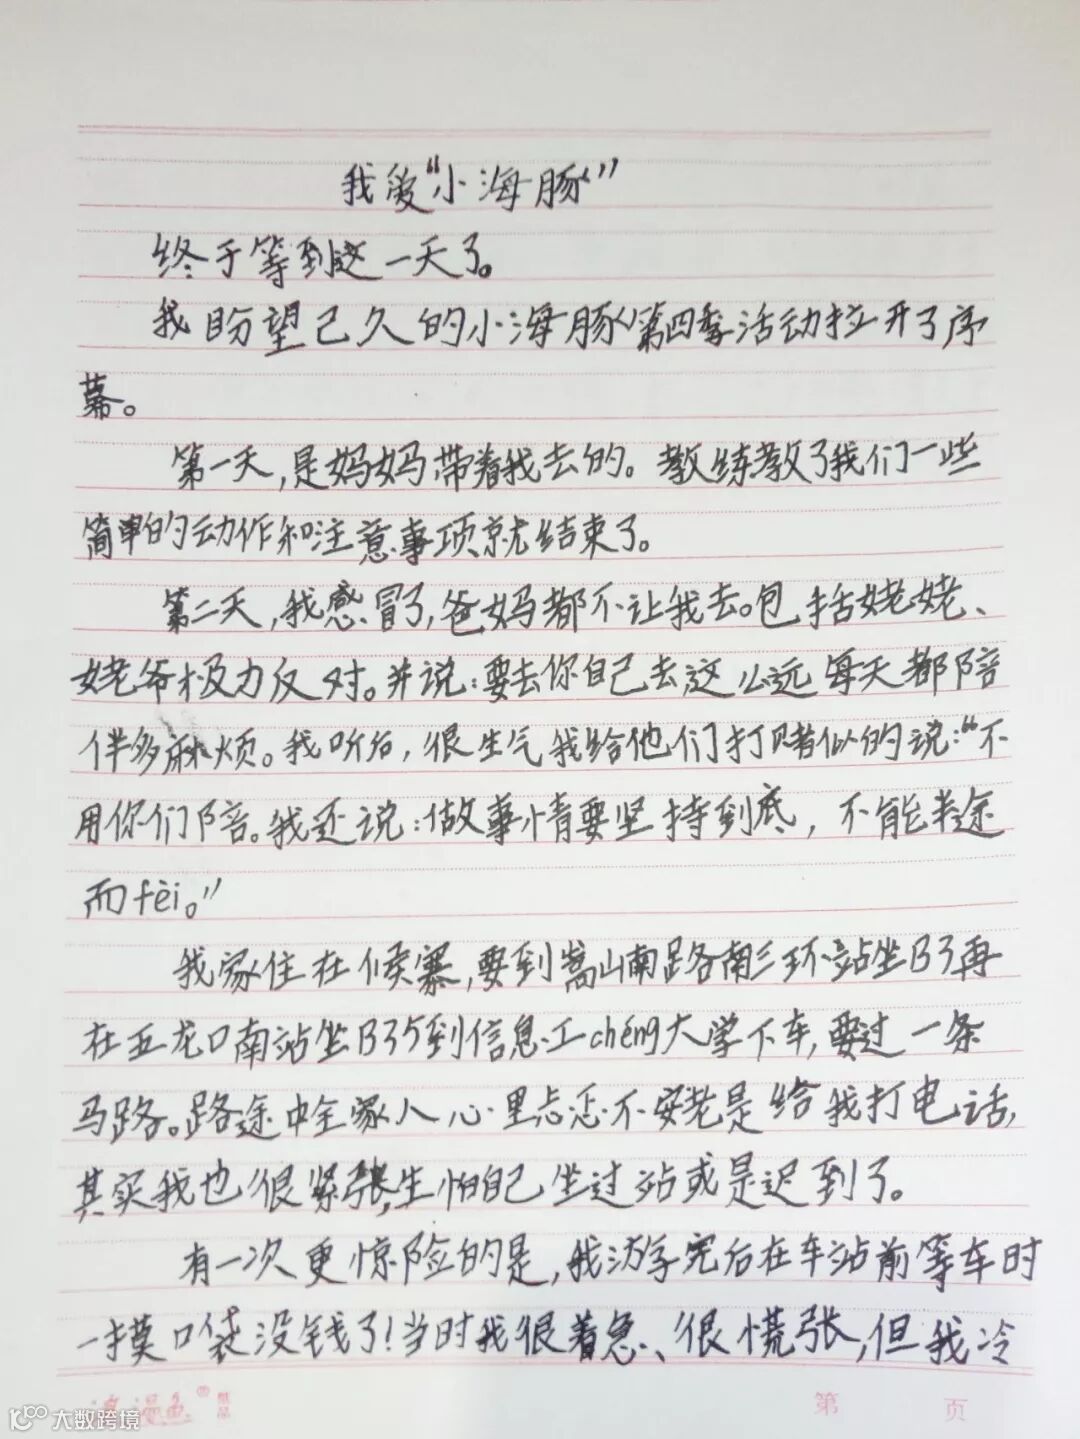 我爱“小海豚”
终于等到这一天了。
我盼望己久的小海豚第四季活动拉开了序
幕。
第一天,是妈妈带着我去的。教练教了我们一些
简单的动作和注意事项就结束了。
第二天,我感冒了,爸妈都不让我去。包括姥姥、
姥爷极力反对。并说:要去你自己去,这么远每天都陪
伴多麻烦。我听后,很生气我给他们打赌似的说:“不
用你们陪。我还说:做事情要坚持到底,不能半途
而fèi。”
我家住在候寨,要到嵩山南路南三环站坐B3再
在五龙口南站坐B35到信息工chéng大学下车,要过一条
马路。路途中全家人心里忐忑不安老是给我打电话,
其实我也很紧张,生怕自己坐过站或是迟到了。
有一次更惊险的是,我游完后在车站前等车时
一摸口袋没钱了!当时我很着急、很慌张,但我冷
浪漫鱼®
第 页
大数跨境